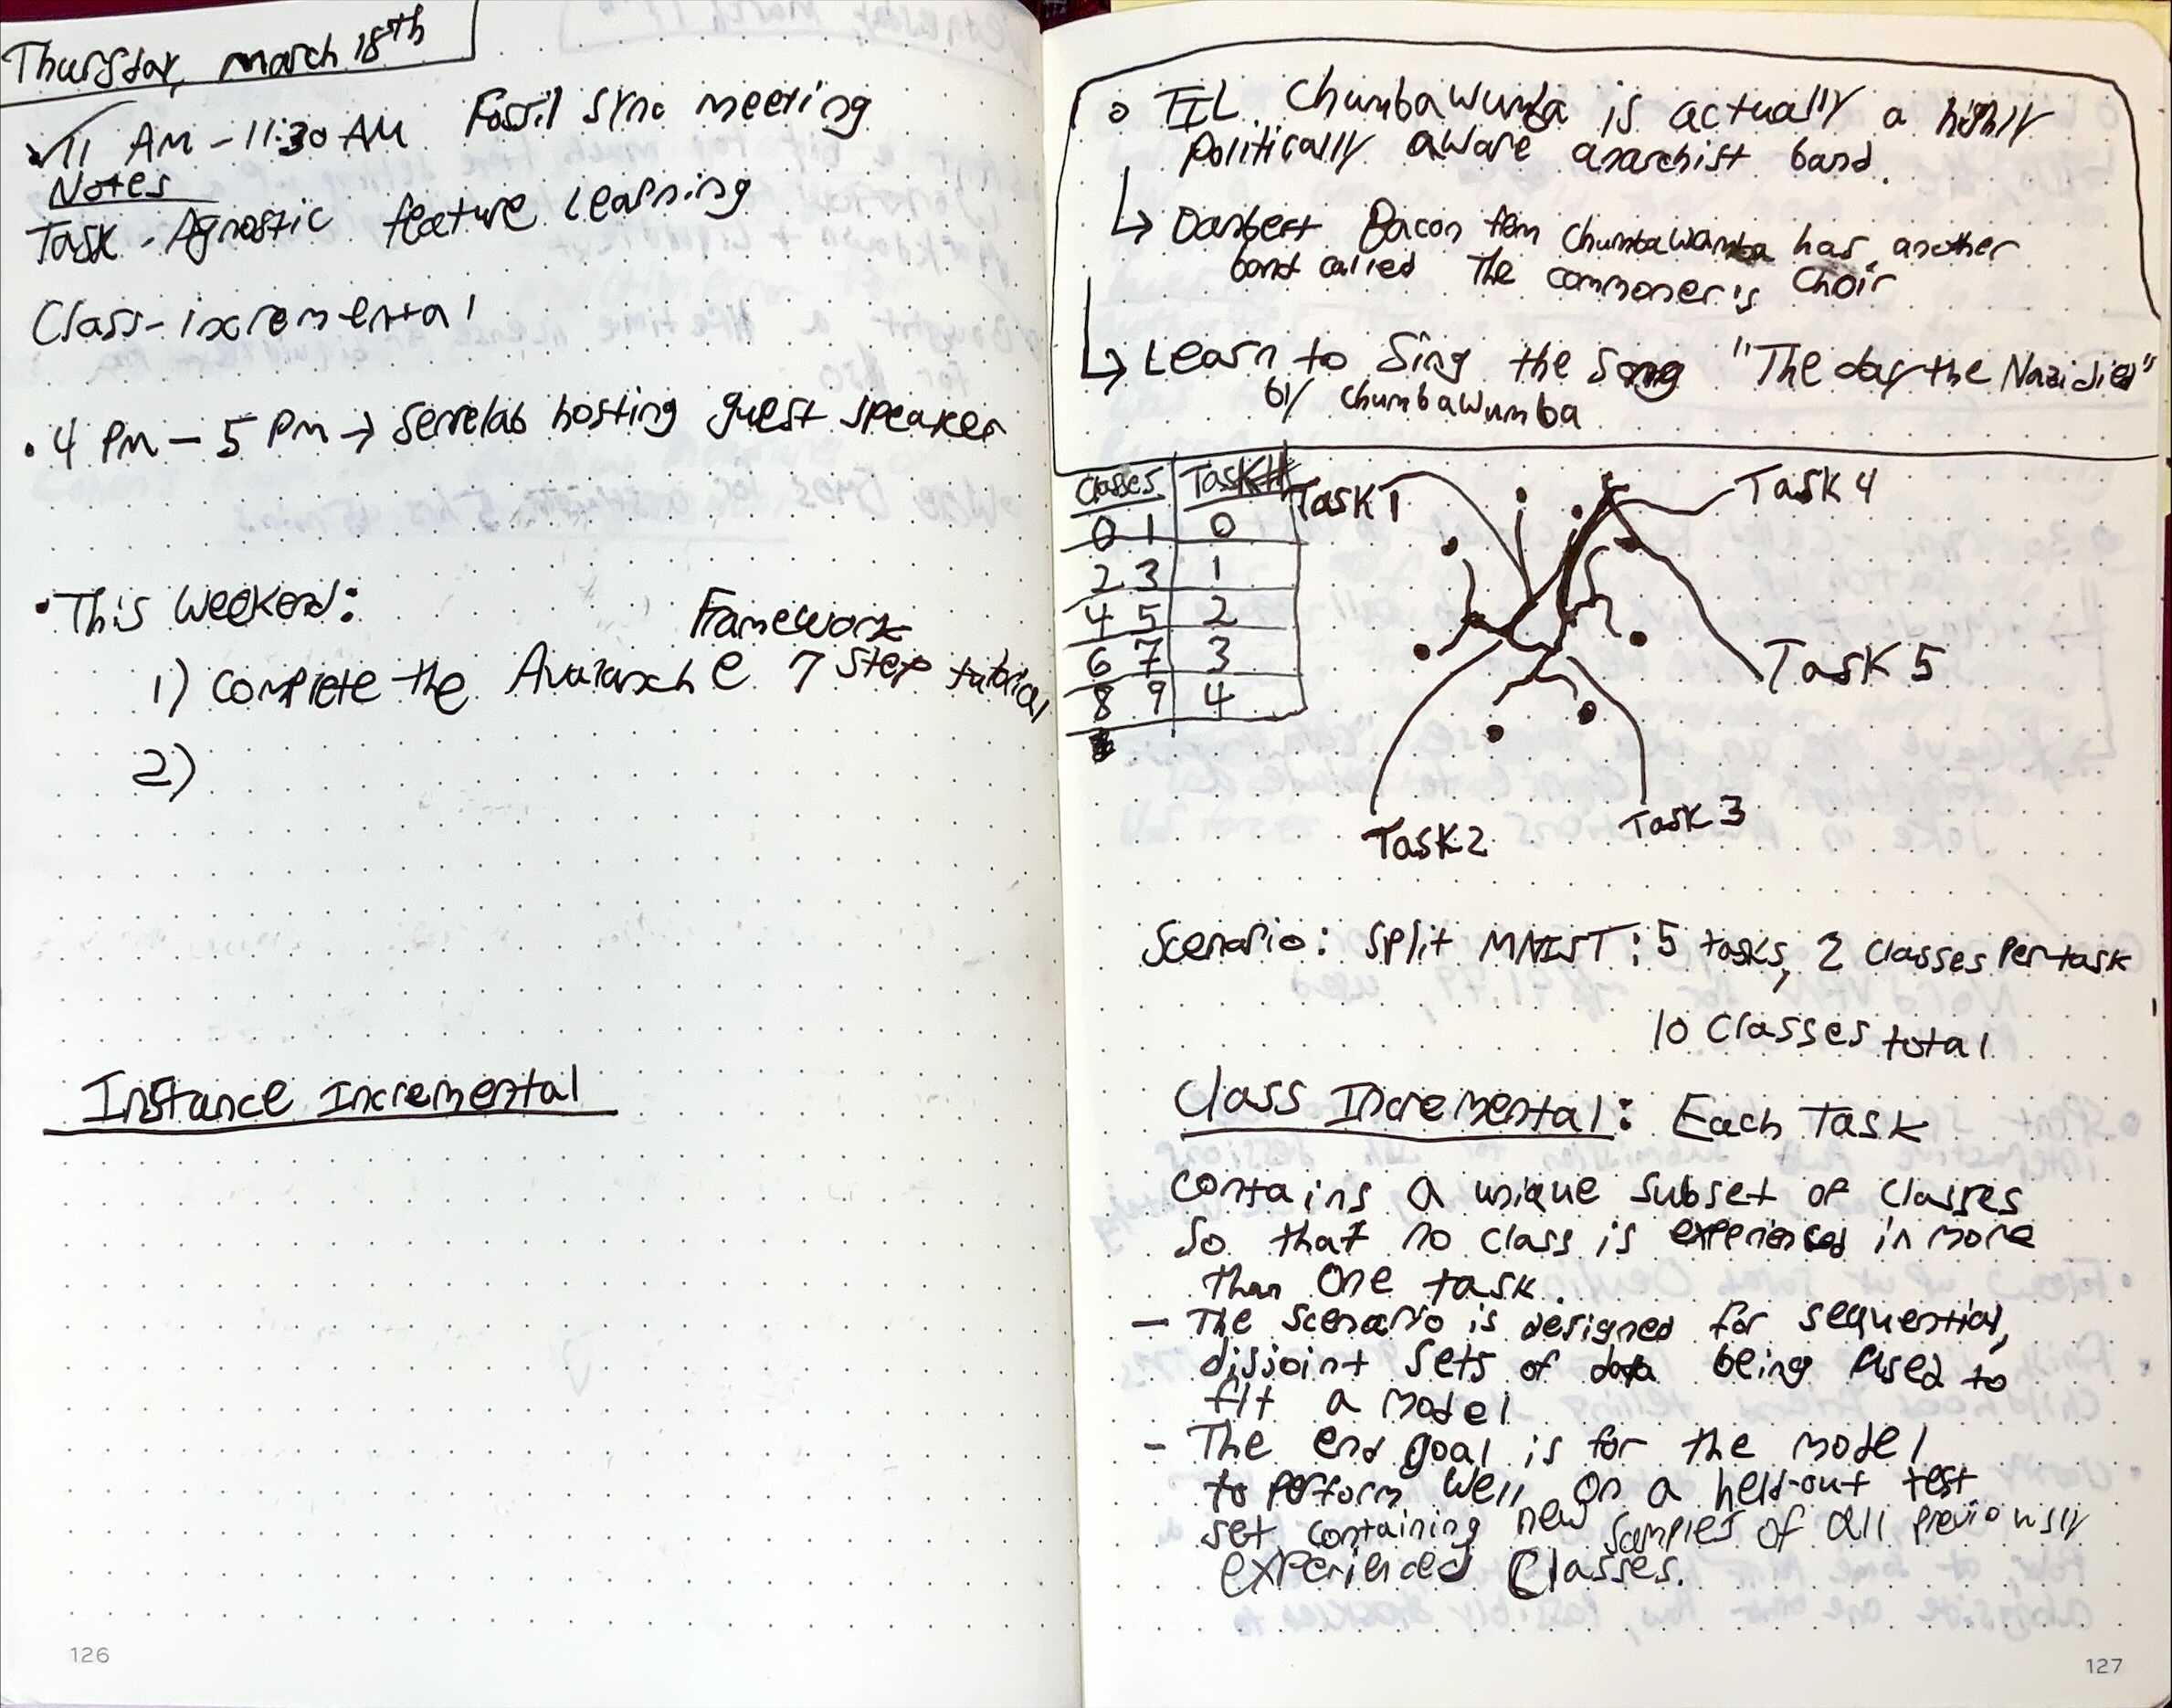 Thursday, march 18th
11 AM - 11:30 AM Fossil sync meeting
Notes
Task-Agnostic feature Learning
Class-incremental
• 4 PM - 5 PM → Serrelab hosting guest speaker
• This weekend:
Framework
1) complete the Avalanche 7 step tutorial
2)
Instance Incremental
126
TIL Chumbawumba is actually a highly
Politically aware anarchist band.
↳ Danbert Bacon from Chumbawamba has another
band called The commoner's Choir
↳ Learn to Sing the Song "The day the Nazi died"
by Chumbawumba
Classes Task#
0 1 0
2 3 1
4 5 2
6 7 3
8 9 4
Task 1
Task 4
Task 5
Task 2
Task 3
Scenario: Split MNIST: 5 tasks, 2 Classes Per task
10 Classes total
Class Incremental: Each Task
contains a unique subset of classes
So that no class is experienced in more
than One task.
- The scenario is designed for sequential,
disjoint sets of data being used to
fit a model
- The end goal is for the model
to perform well on a held-out test
set containing new samples of all previously
experienced Classes.
127